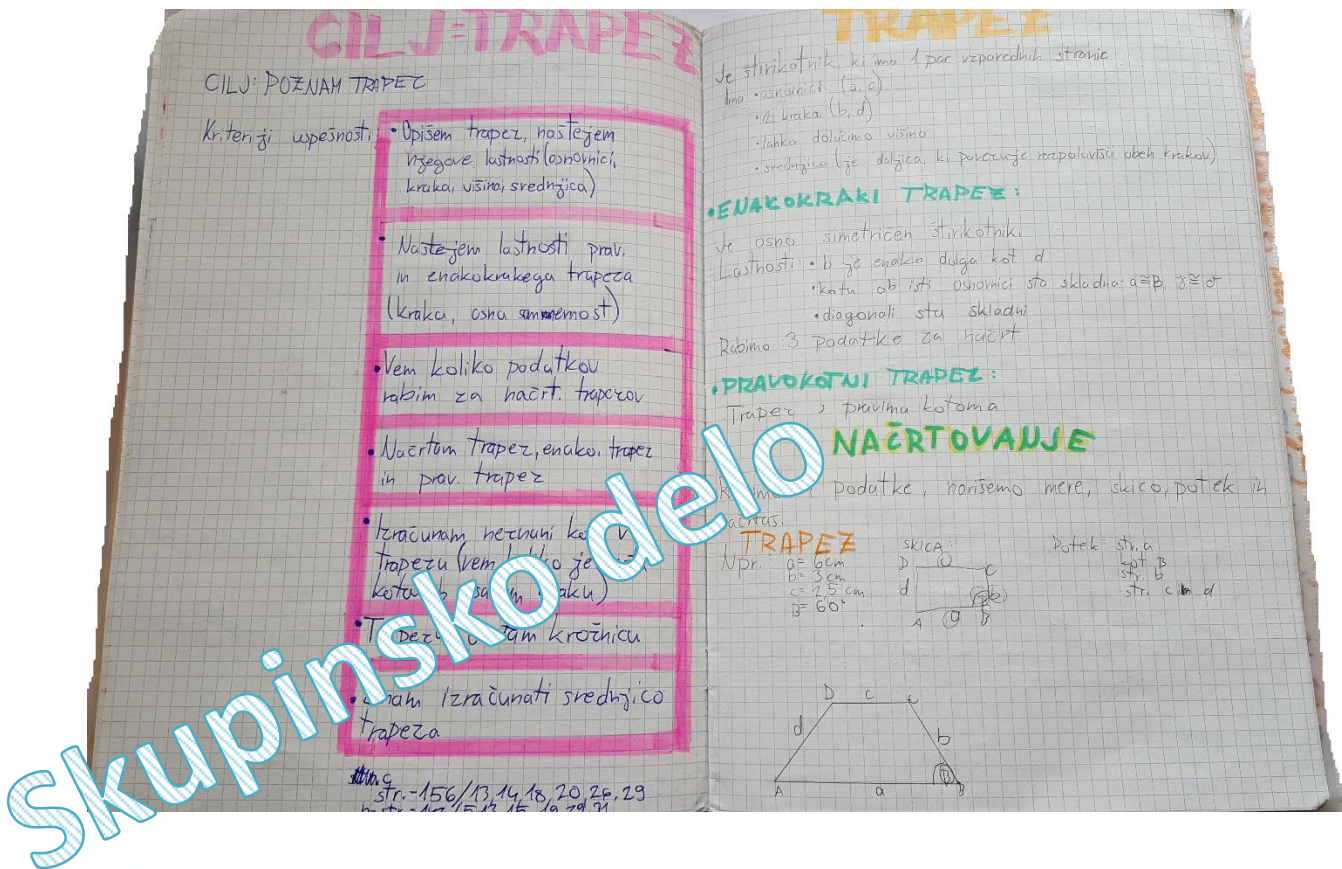 CILJ=TRAPEZ
CILJ: POZNAM TRAPEZ
Kriteriji uspešnosti:
• Opišem trapez, naštejem
njegove lastnosti (osnovnici,
kraka, višina, srednjica)
• Naštejem lastnosti prav.
in enakokrakega trapeza
(kraka, osna
• Vem koliko podatkov
rabim za načrt. trapezov
• Načrtam trapez, enako. trapez
in prav. trapez
• Izračunam neznani
trapezu (vem je
krožnicu
izračunati srednjico
trapeza
str.-156/13,14,18,20,26,29
TRAPEZ
Je štirikotnik, ki ima 1 par vzporednih stranic
Ima • osnovnici (a, c)
• 2 kraka (b, d)
• lahko določimo višino
• srednjica (je daljica, ki povezuje razpolovišči obeh krakov)
• ENAKOKRAKI TRAPEZ:
Je osno simetričen štirikotnik.
Lastnosti: • b je enako dolga kot d
• kota ob isti osnovnici sta skladna: α≅β, γ≅δ
• diagonali sta skladni
Rabimo 3 podatke za načrt.
• PRAVOKOTNI TRAPEZ:
Trapez s pravima kotoma
NAČRTOVANJE
podatke, narišemo mere, skico, potek in
TRAPEZ
Npr.: a= 6cm
b= 3cm
c= 2,5 cm
B= 60°
SKICA:
D C
d b
B
A a B
Potek: str. a
kot B
str. b
str. c in d
D c C
d b
B
A a B
Skupinsko delo